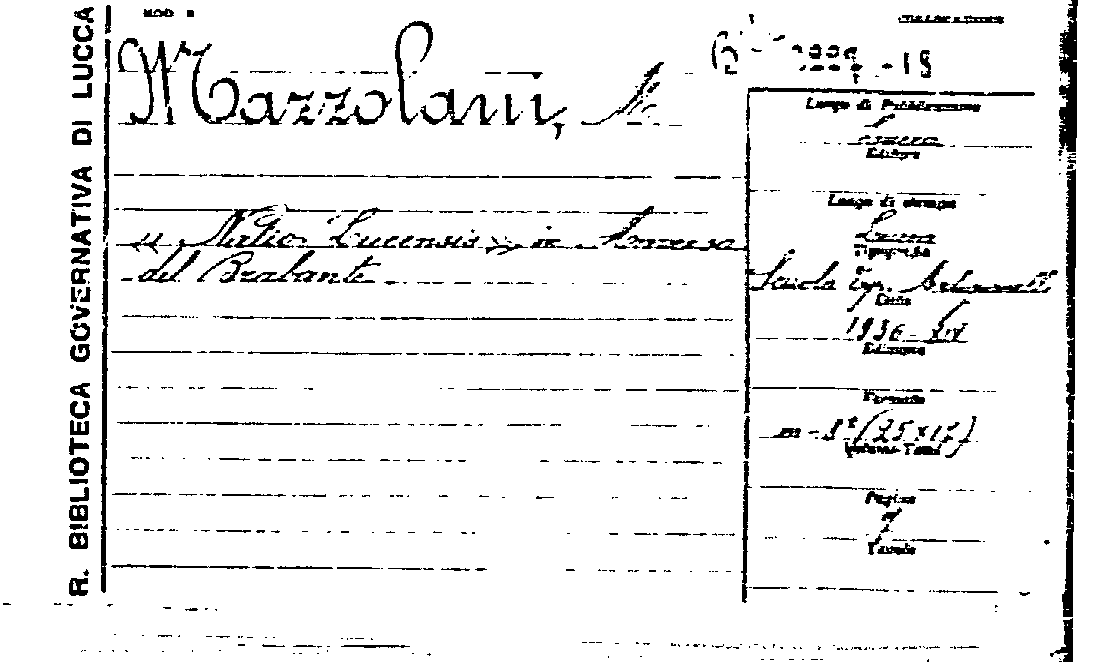 R. BIBLIOTECA GOVERNATIVA DI LUCCA
MOD
Mazzolani,
« Natio Lucensis » in
del Brabante
-18
Luogo di Pubblicazione
Lucca
Editore
Luogo di stampa
Lucca
Tipografia
Scuola Tip.
Data
1936-XIV
Edizione
Formato
in-8° (25x17)
Pagine
7
Tavole